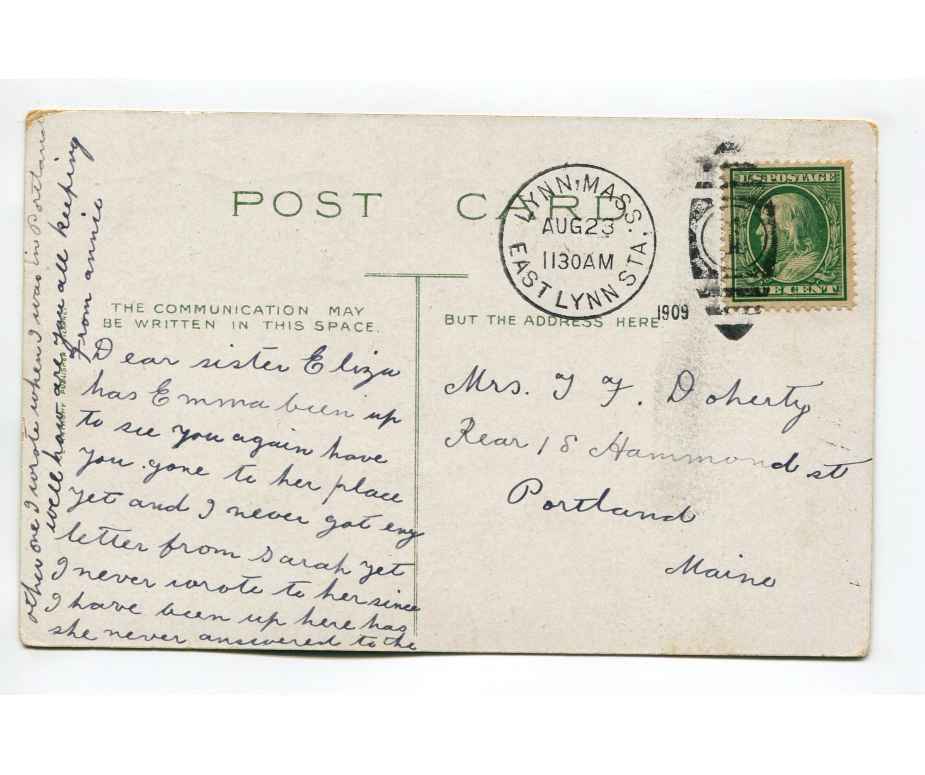 POST CARD
LYNN, MASS.
AUG 23
1130 AM
EAST LYNN STA.
1909
U.S. POSTAGE
E CENT
THE COMMUNICATION MAY
BE WRITTEN IN THIS SPACE.
BUT THE ADDRESS HERE.
Dear sister Eliza
has Emma been up
to see you again have
you gone to her place
yet and I never got eny
letter from Sarah yet
I never wrote to her since
I have been up here has
she never answered to the
other one I wrote when I was in Portland
well how are you all keeping
From annie
Mrs. J J. Doherty
Rear 18 Hammond st
Portland
Maine